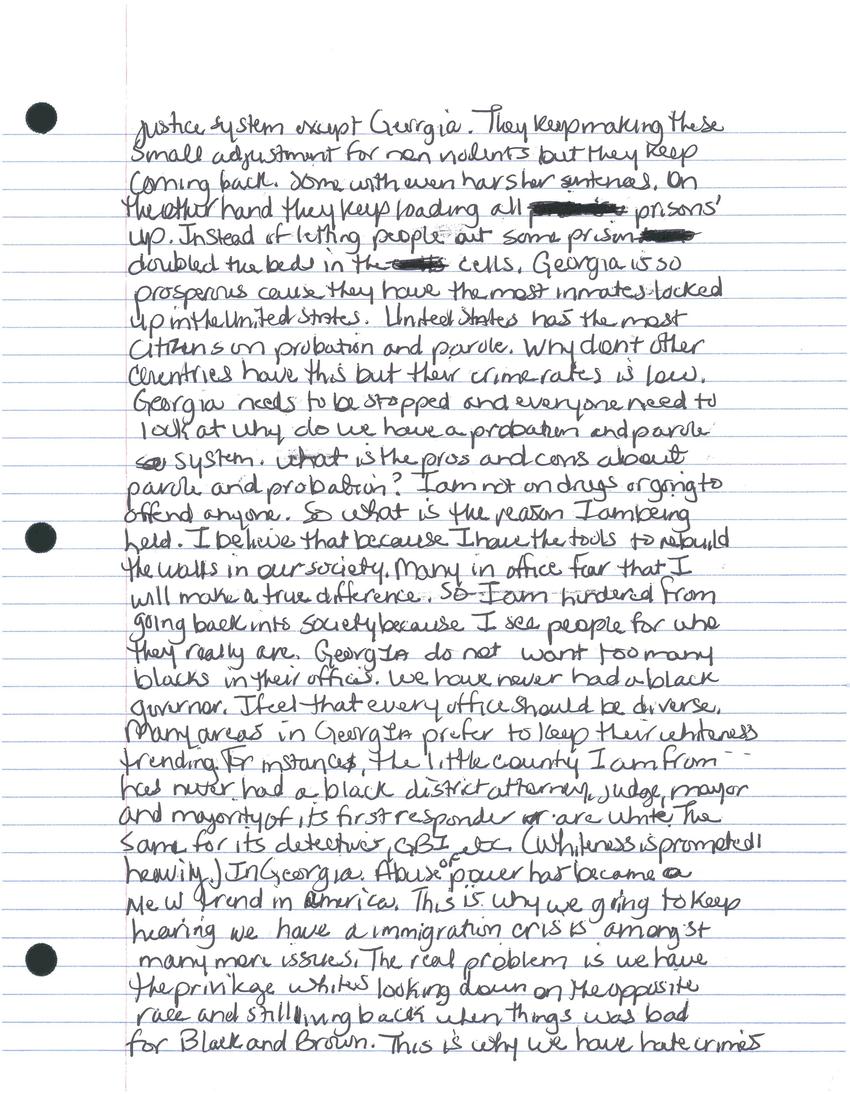 justice system except Georgia. They keep making these
small adjustment for non violents but they keep
coming back. Some with even harsher sentences. On
the other hand they keep loading all prisons'
up. Instead of letting people out some prison
doubled the beds in the cells. Georgia is so
prosperous cause they have the most inmates locked
up in the United States. United States has the most
citizens on probation and parole. Why dont other
countries have this but their crime rates is low.
Georgia needs to be stopped and everyone need to
look at why do we have a probation and parole
system. what is the pros and cons about
parole and probation? I am not on drugs or going to
offend anyone. So what is the reason I am being
held. I believe that because I have the tools to rebuild
the walls in our society. Many in office fear that I
will make a true difference. So I am hindered from
going back into society because I see people for who
they really are. GeorgIA do not want too many
blacks in their offices. We have never had a black
governor. I feel that every office should be diverse.
Many areas in GeorgIA prefer to keep their whiteness
trending. For instances, the little county I am from
has never had a black district attorney, judge, mayor
and majority of its first responder are white. The
same for its detectives, GBI, etc. (Whiteness is prompted
heavily) In Georgia. Abuse of power has became a
new trend in america. This is why we going to keep
hearing we have a immigration crisis amongst
many more issues. The real problem is we have
the privilege whites looking down on the opposite
race and still living back when things was bad
for Black and Brown. This is why we have hate crimes